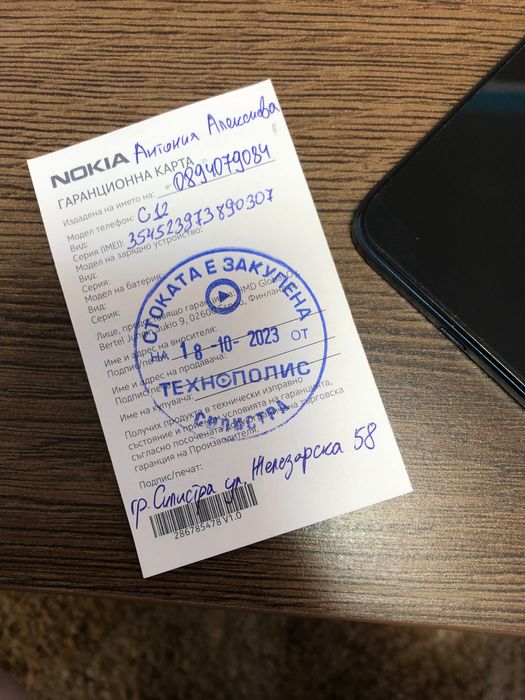 Антония Алексиева
NOKIA
ГАРАНЦИОННА КАРТА
Издадена на името на: 0894079084
Модел телефон: C12
Вид:
Серия (IMEI): 354523973890307
Модел на зарядно устройство:
Вид:
Серия:
Модел на батерия:
Вид:
Серия:
Лице, предоставящо гаранцията: HMD Global Oy
Bertel Jungin aukio 9, 02600 Espoo, Финландия
Име и адрес на вносителя:
Подпис/печат:
Име и адрес на продавача:
Подпис/печат:
Име на купувача:
СТОКАТА Е ЗАКУПЕНА
НА 18-10-2023 ОТ
ТЕХНОПОЛИС
СИЛИСТРА
Получих продукта в технически изправно
състояние и приемам условията на гаранцията,
съгласно посочената търговска
гаранция на Производителя.
Подпис/печат:
гр. Силистра ул. Железарска 58
286785478 V1.0